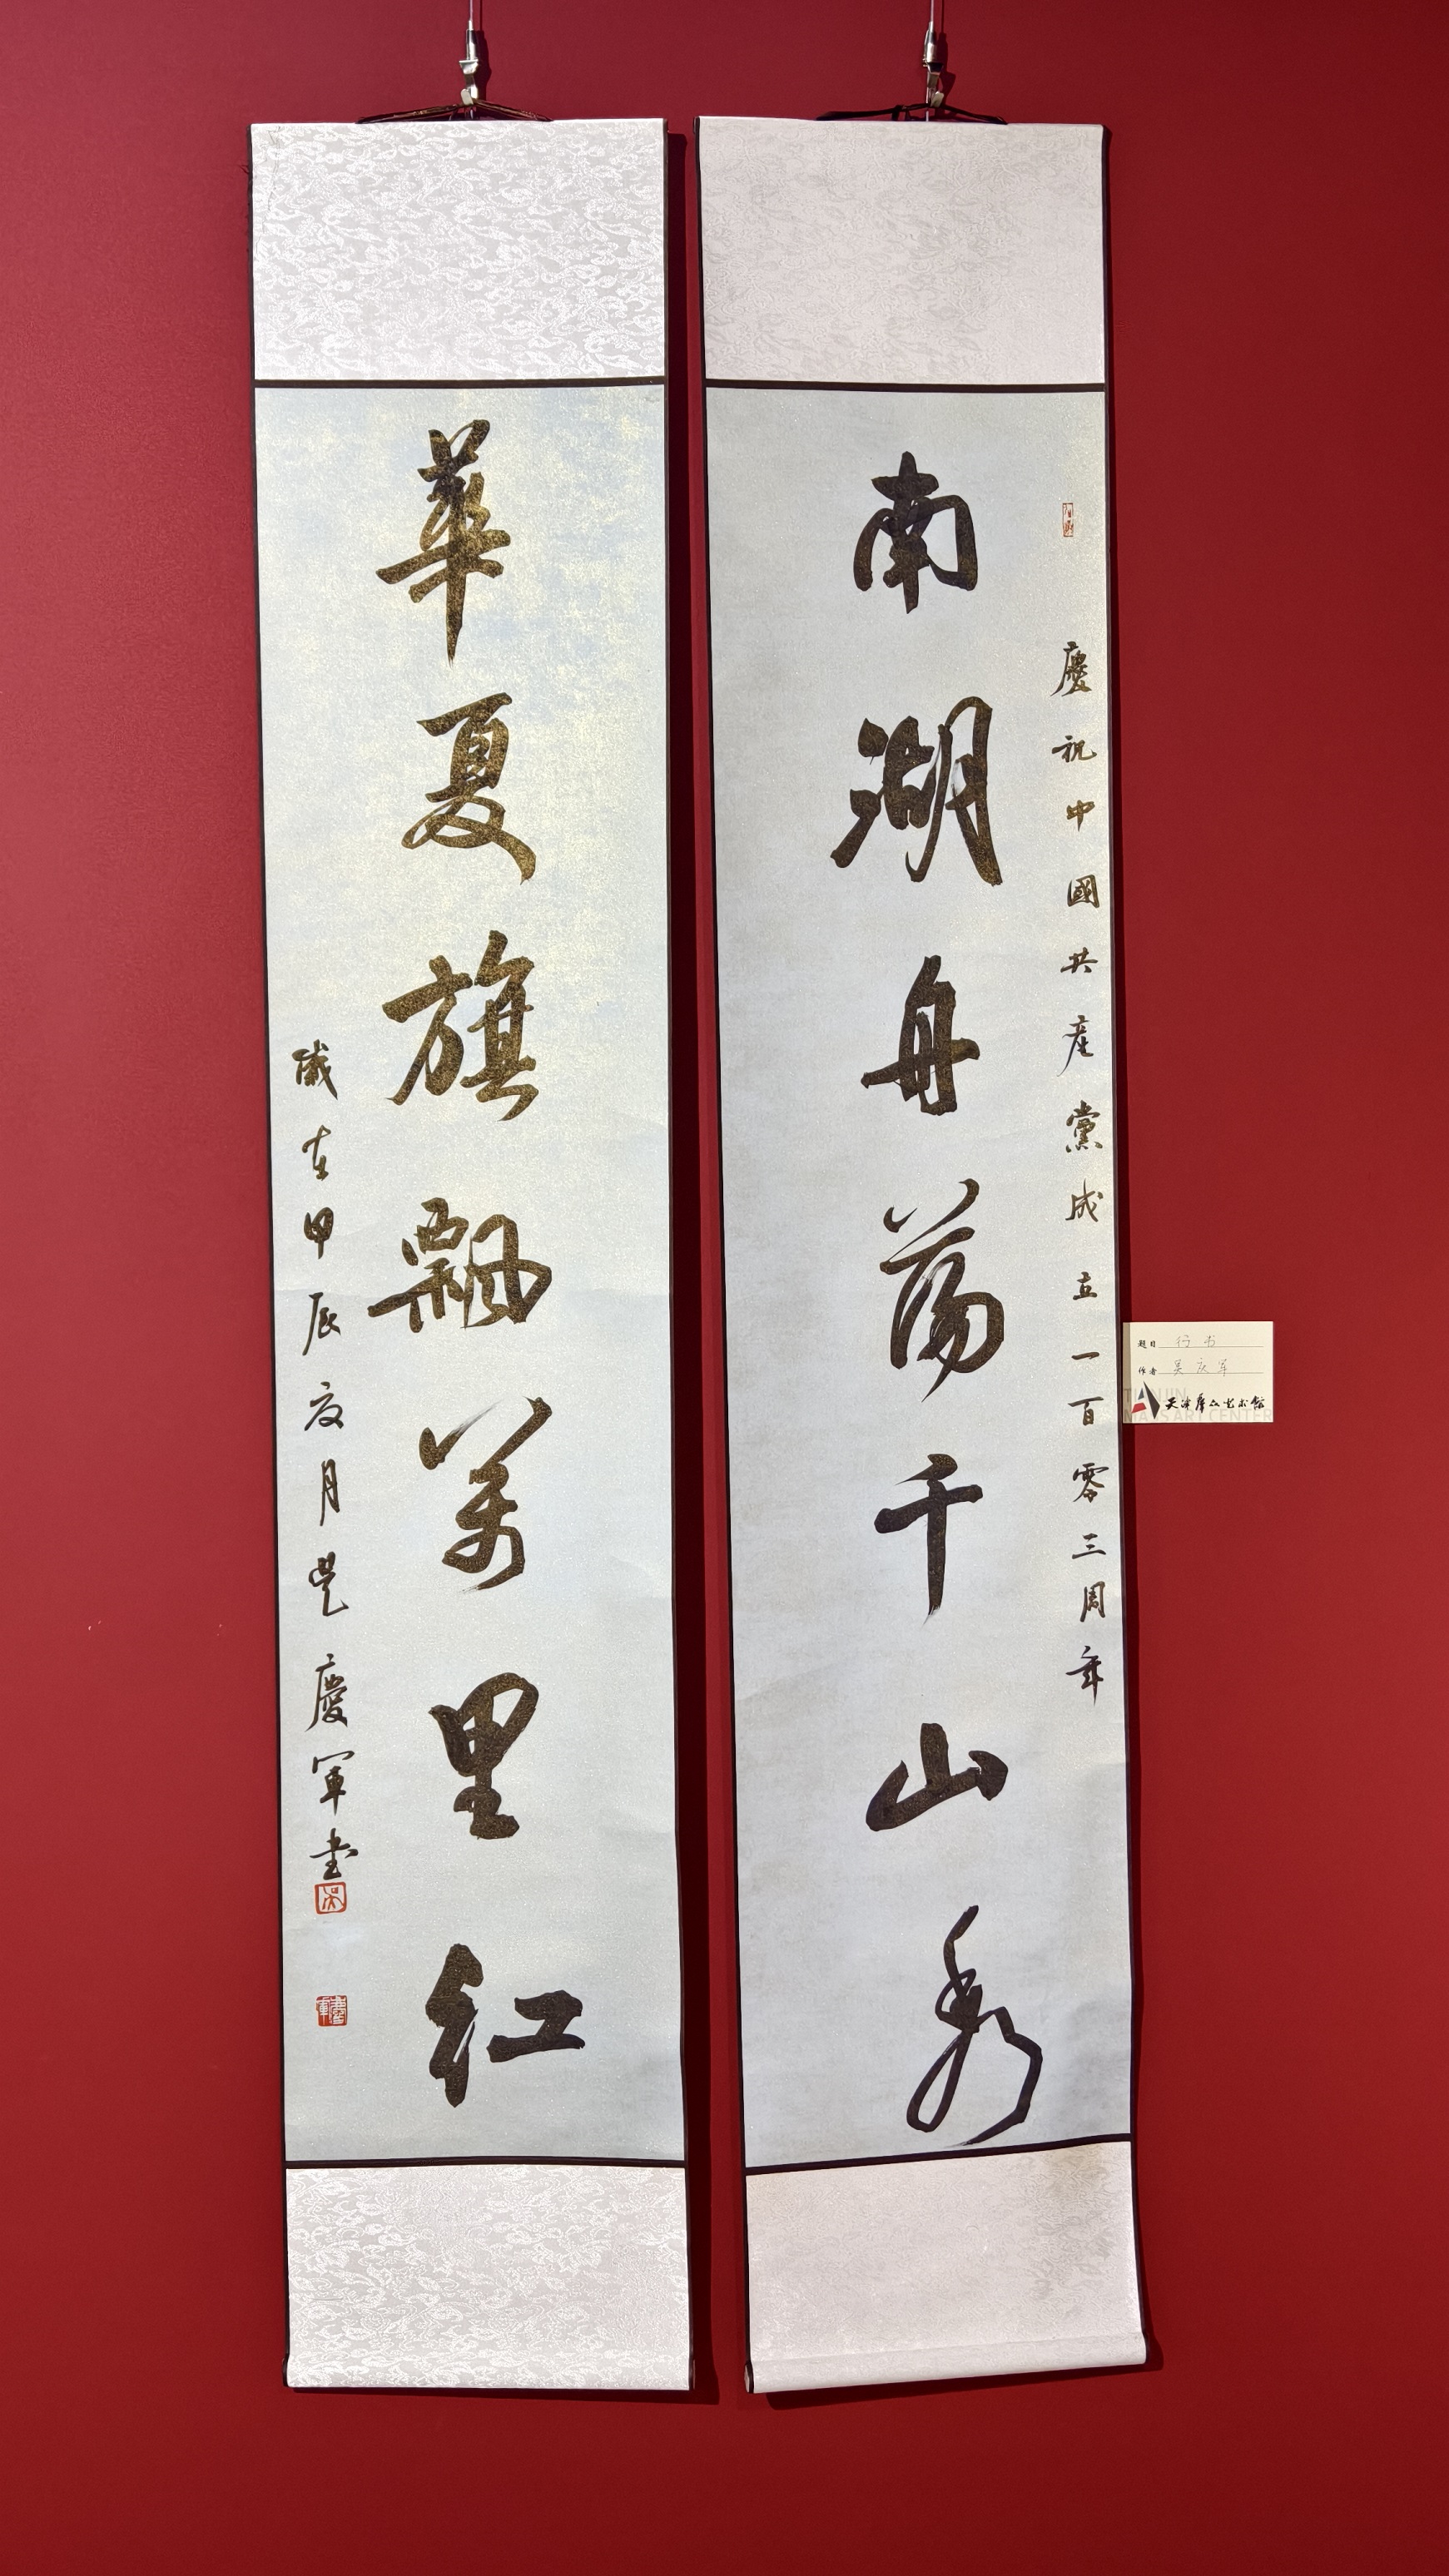 慶祝中國共産黨成立一百零三周年
南湖舟蕩千山秀
華夏旗飄萬里紅
歲在甲辰夏月吳慶軍書
吳
慶軍
题目 行书
作者 吴庆军
天津群众艺术馆